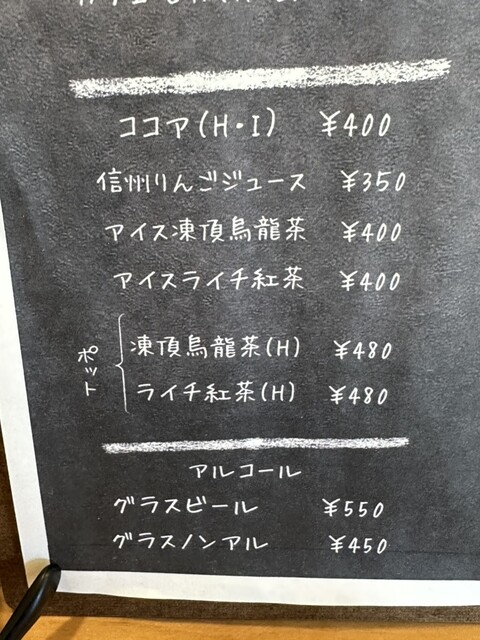 ココア(H・I) ¥400
信州りんごジュース ¥350
アイス凍頂烏龍茶 ¥400
アイスライチ紅茶 ¥400
ポット
凍頂烏龍茶(H) ¥480
ライチ紅茶(H) ¥480
アルコール
グラスビール ¥550
グラスノンアル ¥450